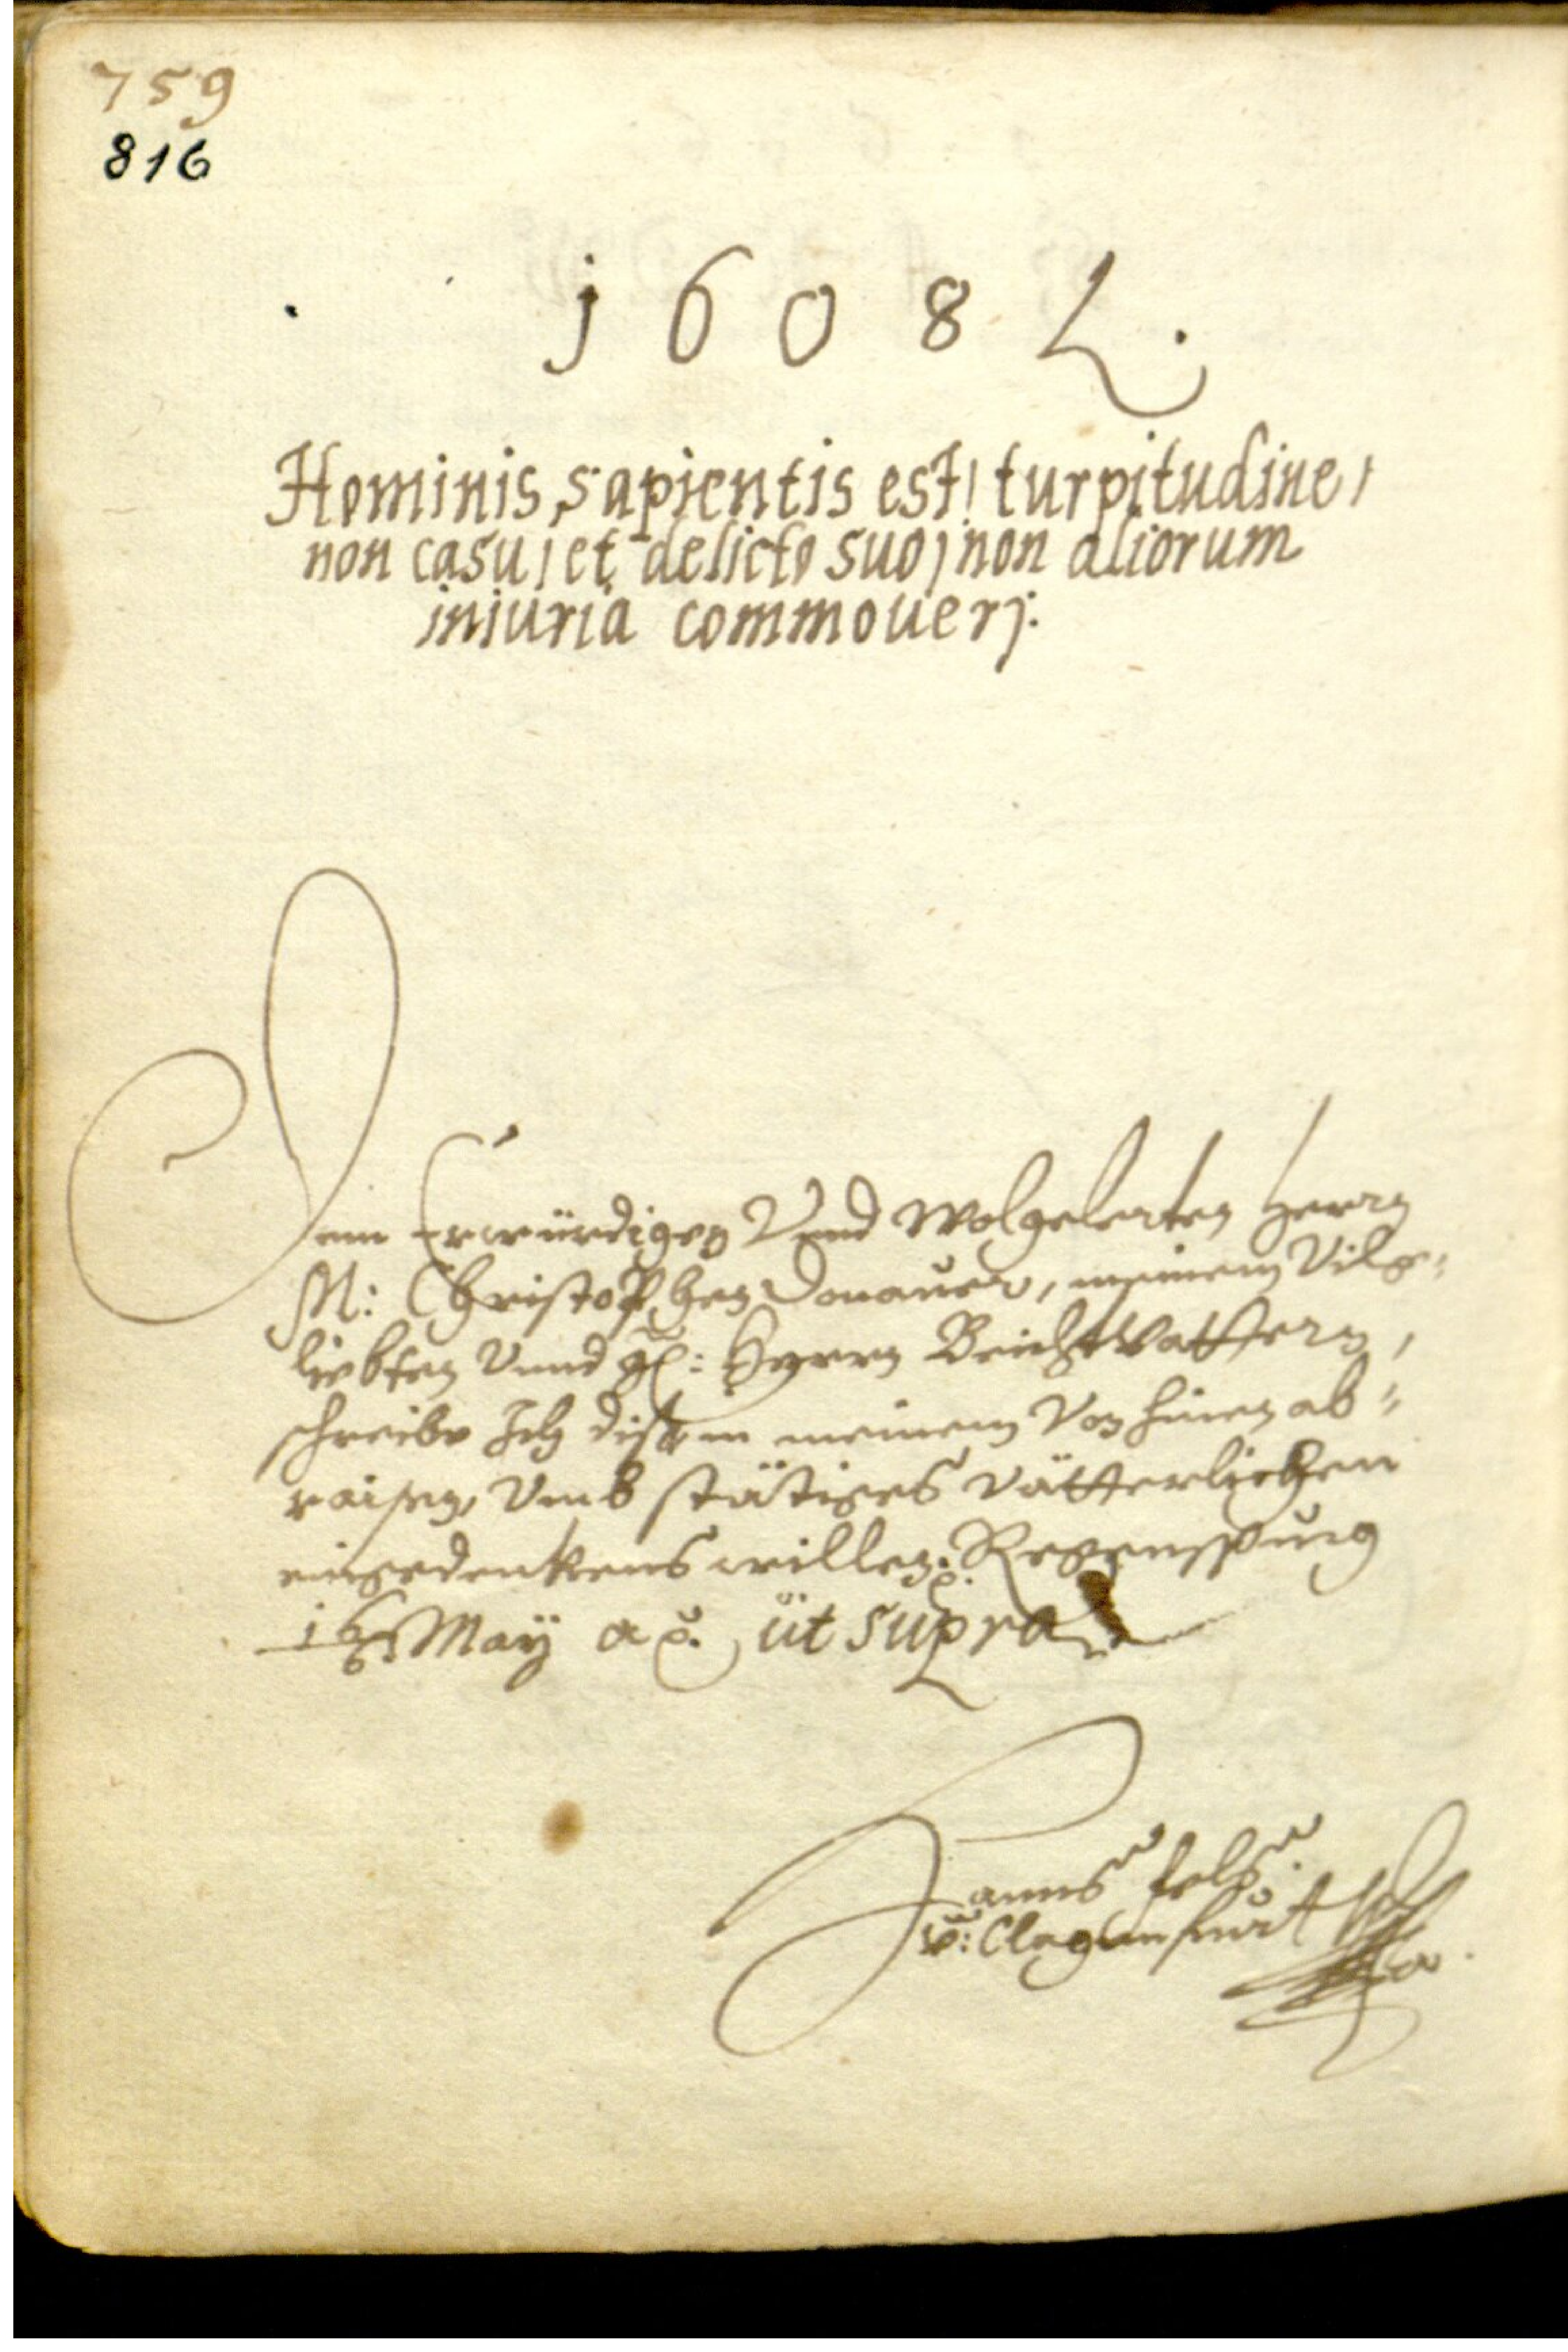 759
816
1608
Hominis sapientis est, turpitudine,
non casu, et delicto suo, non aliorum
iniuria commoueri.
Dem Erwürdigen Vnnd Wolgelerten Herrn
M: Christophen Donauer, meinem Vilge-
liebten Vnnd Herrn Beichtvattern,
schreibe Ich diß in meinem Von hinen ab-
raisen, Vmb stätiges Vätterlichen
eingedenkens willen. Regenspurg
16 May a°. üt supra
Hanns Fels
v: Clagenfurt